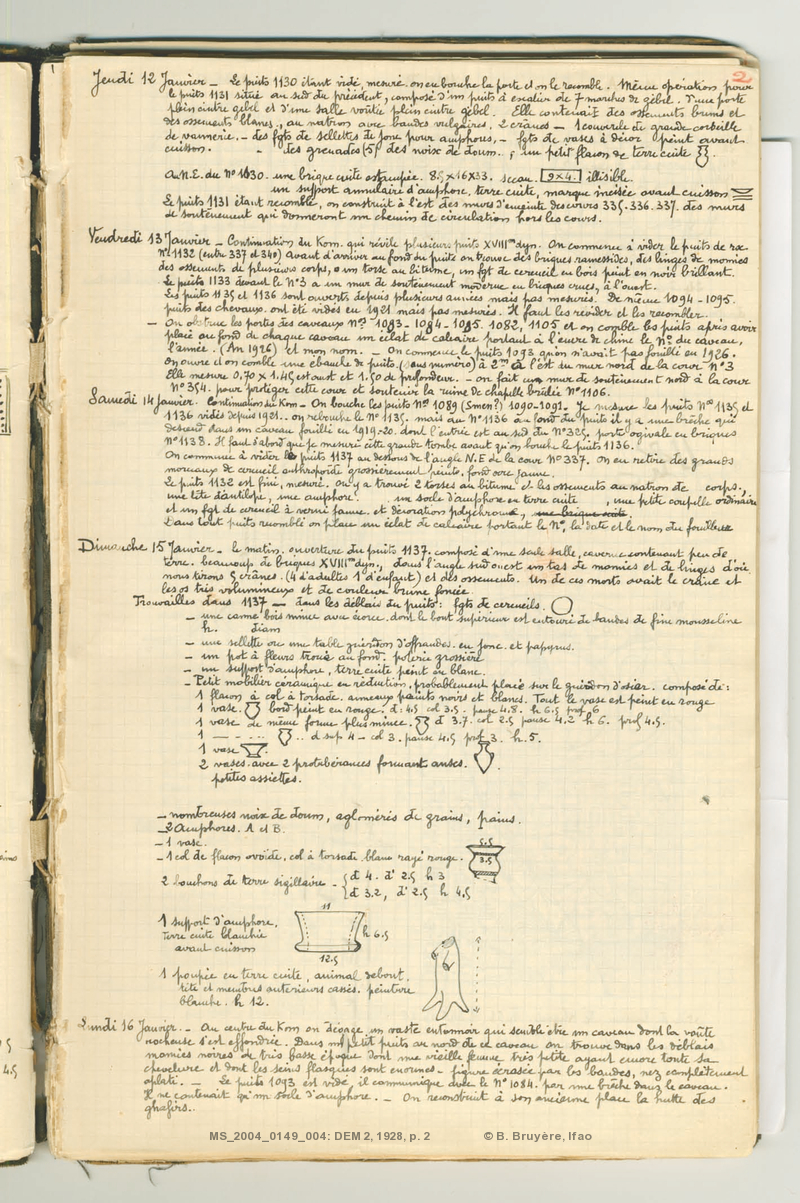 2
Jeudi 12 Janvier _ Le puits 1130 étant vidé, mesuré. on en bouche la porte et on le recomble. Même opération pour
le puits 1131 situé au sud du précédent, composé d'un puits à escalier de 7 marches de gébel. d'une porte
plein cintre gébel et d'une salle voûtée plein cintre gébel. Elle contenait des ossements bruns et
des ossements blancs, au natron avec bandes vulgaires, 2 crânes _ 1 couvercle de grande corbeille
de vannerie. _ des fgts de sellettes de jonc pour amphores, _ fgts de vases à décor peint avant
cuisson. _ des grenades (5) des noix de doum. ; un petit flacon de terre cuite
Au N.E. du No 1130 une brique cuite estampée. 8.5 x 16 x 33. sceau. 9 x 4. illisible.
un support annulaire d'amphore, terre cuite, marque incisée avant cuisson
Le puits 1131 étant recomblé, on construit à l'est des murs d'enceinte des cours 335. 336. 337. des murs
de soutènement qui donneront un chemin de circulation hors les cours.
Vendredi 13 Janvier _ Continuation du Kom. qui révèle plusieurs puits XVIIIme dyn. On commence à vider le puits de
No 1132 (entre 337 et 340) Avant d'arriver au fond du puits on trouve des briques ramessides, des linges de momies
des ossements de plusieurs corps, un torse au bitume, un fgt de cercueil en bois peint en noir brillant.
Le puits 1133 devant le No 3 a un mur de soutènement moderne en briques crues, à l'ouest.
Les puits 1135 et 1136 sont ouverts depuis plusieurs années mais pas mesurés. De même 1094 - 1095.
puits des chevaux. ont été vidés en 1921 mais pas mesurés. Il faut les revider et les recombler.
_ On obstrue les portes des caveaux Nos 1083 - 1084 - 1085. 1082, 1105 et on comble les puits après avoir
placé au fond de chaque caveau un éclat de calcaire portant à l'encre de chine le No du caveau,
l'année. (An 1926) et mon nom. _ On commence le puits 1093 qu'on n'avait pas fouillé en 1926.
On ouvre et on comble une ébauche de puits (sans numéro) à 2m à l'est du mur nord de la cour No 3
Elle mesure 0,70 x 1.45 est ouest et 1.50 de profondeur. _ on fait un mur de soutènement nord à la cour
No 354. pour protéger cette cour et soutenir la ruine de chapelle brûlée No 1106.
Samedi 14 janvier. Continuation du Kom _ On bouche les puits Nos 1089 (Smen?) 1090-1091. Je mesure les puits Nos 1135 et
1136 vidés depuis 1921.. on rebouche le No 1135. mais au No 1136 au fond du puits il y a une brêche qui
descend dans un caveau fouillé en 1919-20. dont l'entrée est au sud du No 325. porte ogivale en briques
No 1138. Il faut d'abord que je mesure cette grande tombe avant qu'on bouche le puits 1136.
On commence à vider le puits 1137 au dessous de l'angle N.E de la cour No 337. on en retire des grands
morceaux de cercueil anthropoïde grossièrement peints. fond ocre jaune.
Le puits 1132 est fini, mesuré. On y a trouvé 2 torses au bitume et les ossements au natron de corps,
une tête d'antilope, une amphore. un socle d'amphore en terre cuite , une petite coupelle ordinaire
et un fgt de cercueil à verni jaune. et décoration polychrome, une brique cuite.
Dans tout puits recomblé on place un éclat de calcaire portant le No, la date et le nom du fouilleur
Dimanche 15 Janvier _ le matin. ouverture du puits 1137. composé d'une seule salle, caverne contenant peu de
terre. beaucoup de briques XVIIIme dyn., dans l'angle sud ouest un tas de momies et de linges d'où
nous tirons 5 crânes. (4 d'adultes 1 d'enfant) et des ossements. Un de ces morts avait le crâne et
les os très volumineux et de couleur brune foncée.
Trouvailles dans 1137 _ dans les déblais du puits: fgts de cercueils.
_ une canne bois mince avec écorce. dont le bout supérieur est entouré de bandes de fine mousseline
h. diam
_ une sellette ou une table guéridon d'offrandes. en jonc. et papyrus.
_ un pot à fleurs troué au fond. poterie grossière
_ un support d'amphore, terre cuite peint en blanc.
_ Petit mobilier céramique en réduction, probablement placé sur le guéridon d'osier. composé de:
1 flacon à col à torsade. anneaux peints noirs et blancs. Tout le vase est peint en rouge
1 vase. bord peint en rouge. d: 4.5 col 3.5 _ panse 4.8. h 6.5 prof 6
1 vase de même forme plus mince. d 3.7. col 2.5 panse 4.2 h 6. prof 4.5.
1 _ - - . . . . d sup 4 _ col 3. panse 4.5 prof 3. h. 5.
1 vase
2 vases. avec 2 protubérances formant anses.
petites assiettes.
_ nombreuses noix de doum, aglomérés de grains, pains.
_ 2 Amphores. A et B.
_ 1 vase.
_ 1 col de flacon ovoïde, col à torsade blanc rayé rouge.
5.5
3.5
2 bouchons de terre sigillaire - { d 4. d' 2.5 h 3
{ d 3.2, d' 2.5 h 4.5
1 support d'amphore,
terre cuite blanchie
avant cuisson
11
h 6.5
12.5
1 poupée en terre cuite, animal debout,
tête et membres antérieurs cassés. peinture
blanche. h 12.
Lundi 16 Janvier. _ Au centre du Kom on dégage un vaste entonnoir qui semble être un caveau dont la voûte
rocheuse s'est effondrée. Dans un petit puits au nord de ce caveau on trouve dans les déblais
momies noires de très basse époque dont une vieille femme très petite ayant encore toute sa
chevelure et dont les seins flasques sont énormes - figure écrasée par les bandes, nez complètement
aplati. _ Le puits 1093 est vidé il communique avec le No 1084. par une brêche dans le caveau.
Il ne contenait qu'un socle d'amphore. _ On reconstruit à son ancienne place la hutte des
ghafirs..
MS_2004_0149_004: DEM 2, 1928, p. 2 © B. Bruyère, Ifao